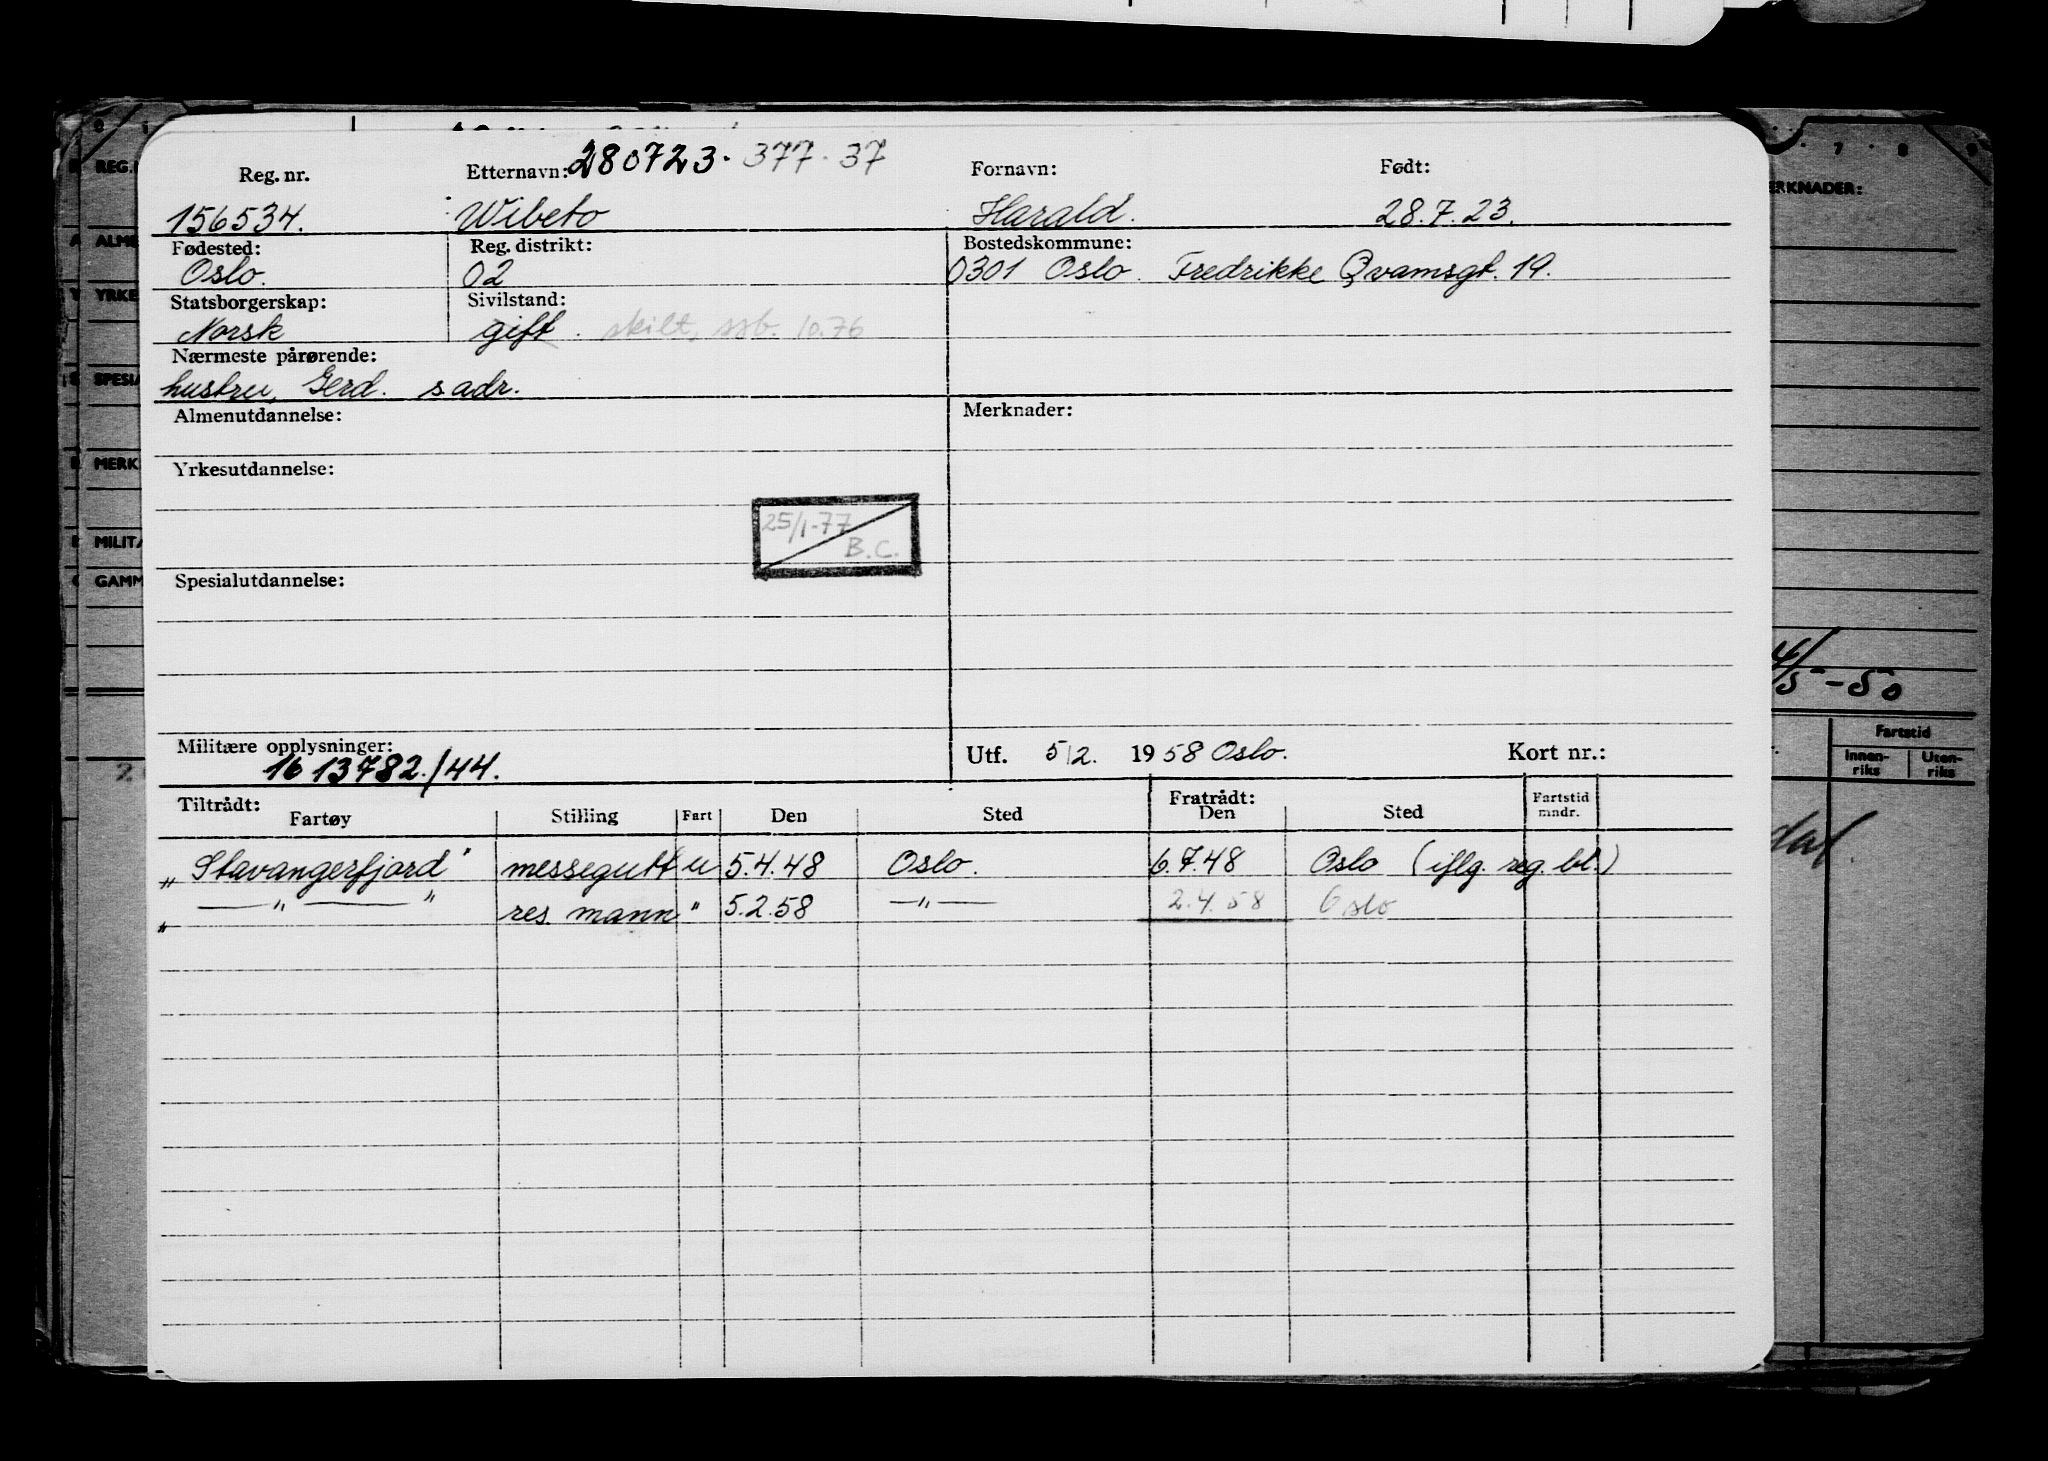 Reg. nr. Etternavn: 280723. 377. 37 Fornavn: Født:
156534. Wibeto Harald. 28.7.23.
Fødested: Reg. distrikt: Bostedskommune:
Oslo. 02 0301 Oslo. Fredrikke Qvamsgt. 19.
Statsborgerskap: Sivilstand:
Norsk gift. skilt, ssb. 10.76
Nærmeste pårørende:
hustru, Gerd. s adr.
Almenutdannelse: Merknader:
Yrkesutdannelse:
25/1-77
B.C.
Spesialutdannelse:
Militære opplysninger: Utf. 5/2. 1958 Oslo. Kort nr.:
16 13782./44.
Tiltrådt: Fratrådt:
Fartøy Stilling Fart Den Sted Den Sted Fartstid mndr.
„Stavangerfjord" messegutt u 5.4.48 Oslo. 6.7.48 Oslo (iflg. reg. bl.)
„ —"— " res. mann " 5.2.58 —"— 2.4.58 Oslo
REG.
ALME
YRKE
SPESIA
MERK
MILITÆ
GAMM
ERKNADER:
7 8 9
4/5-50
Fartstid
Innen-riks Uten-riks